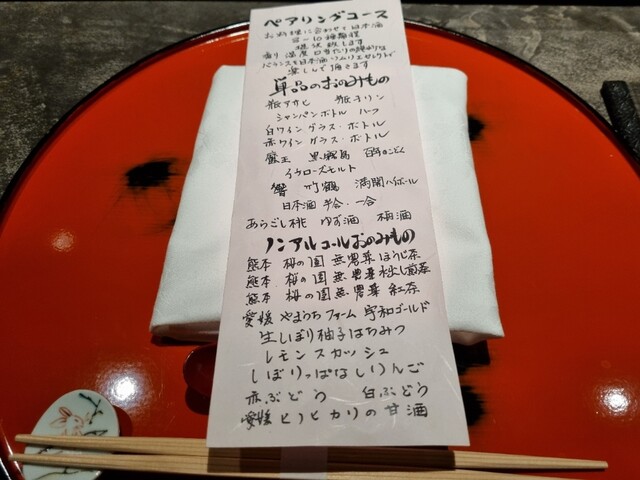 ペアリングコース
お料理に合わせて日本酒
8〜10種類程
提供致します
香り 温度 口当たりの
バランスを日本酒ソムリエセレクトで
楽しんで頂きます
単品のおのみもの
瓶アサヒ 瓶キリン
シャンパンボトル ハーフ
白ワイン グラス・ボトル
赤ワイン グラス・ボトル
魔王 黒霧島 百年のこどく
イチローズモルト
響 竹鶴 ハイボール
日本酒 半合・一合
あらごし桃 ゆず酒 梅酒
ノンアルコールおのみもの
熊本 桜の園 無農薬 ほうじ茶
熊本 桜の園 無農薬 水出し煎茶
熊本 桜の園 無農薬 紅茶
愛媛 やまうち ファーム 宇和ゴールド
生しぼり柚子はちみつ
レモン スカッシュ
しぼりっぱなしりんご
赤ぶどう 白ぶどう
愛媛 ヒノヒカリの甘酒